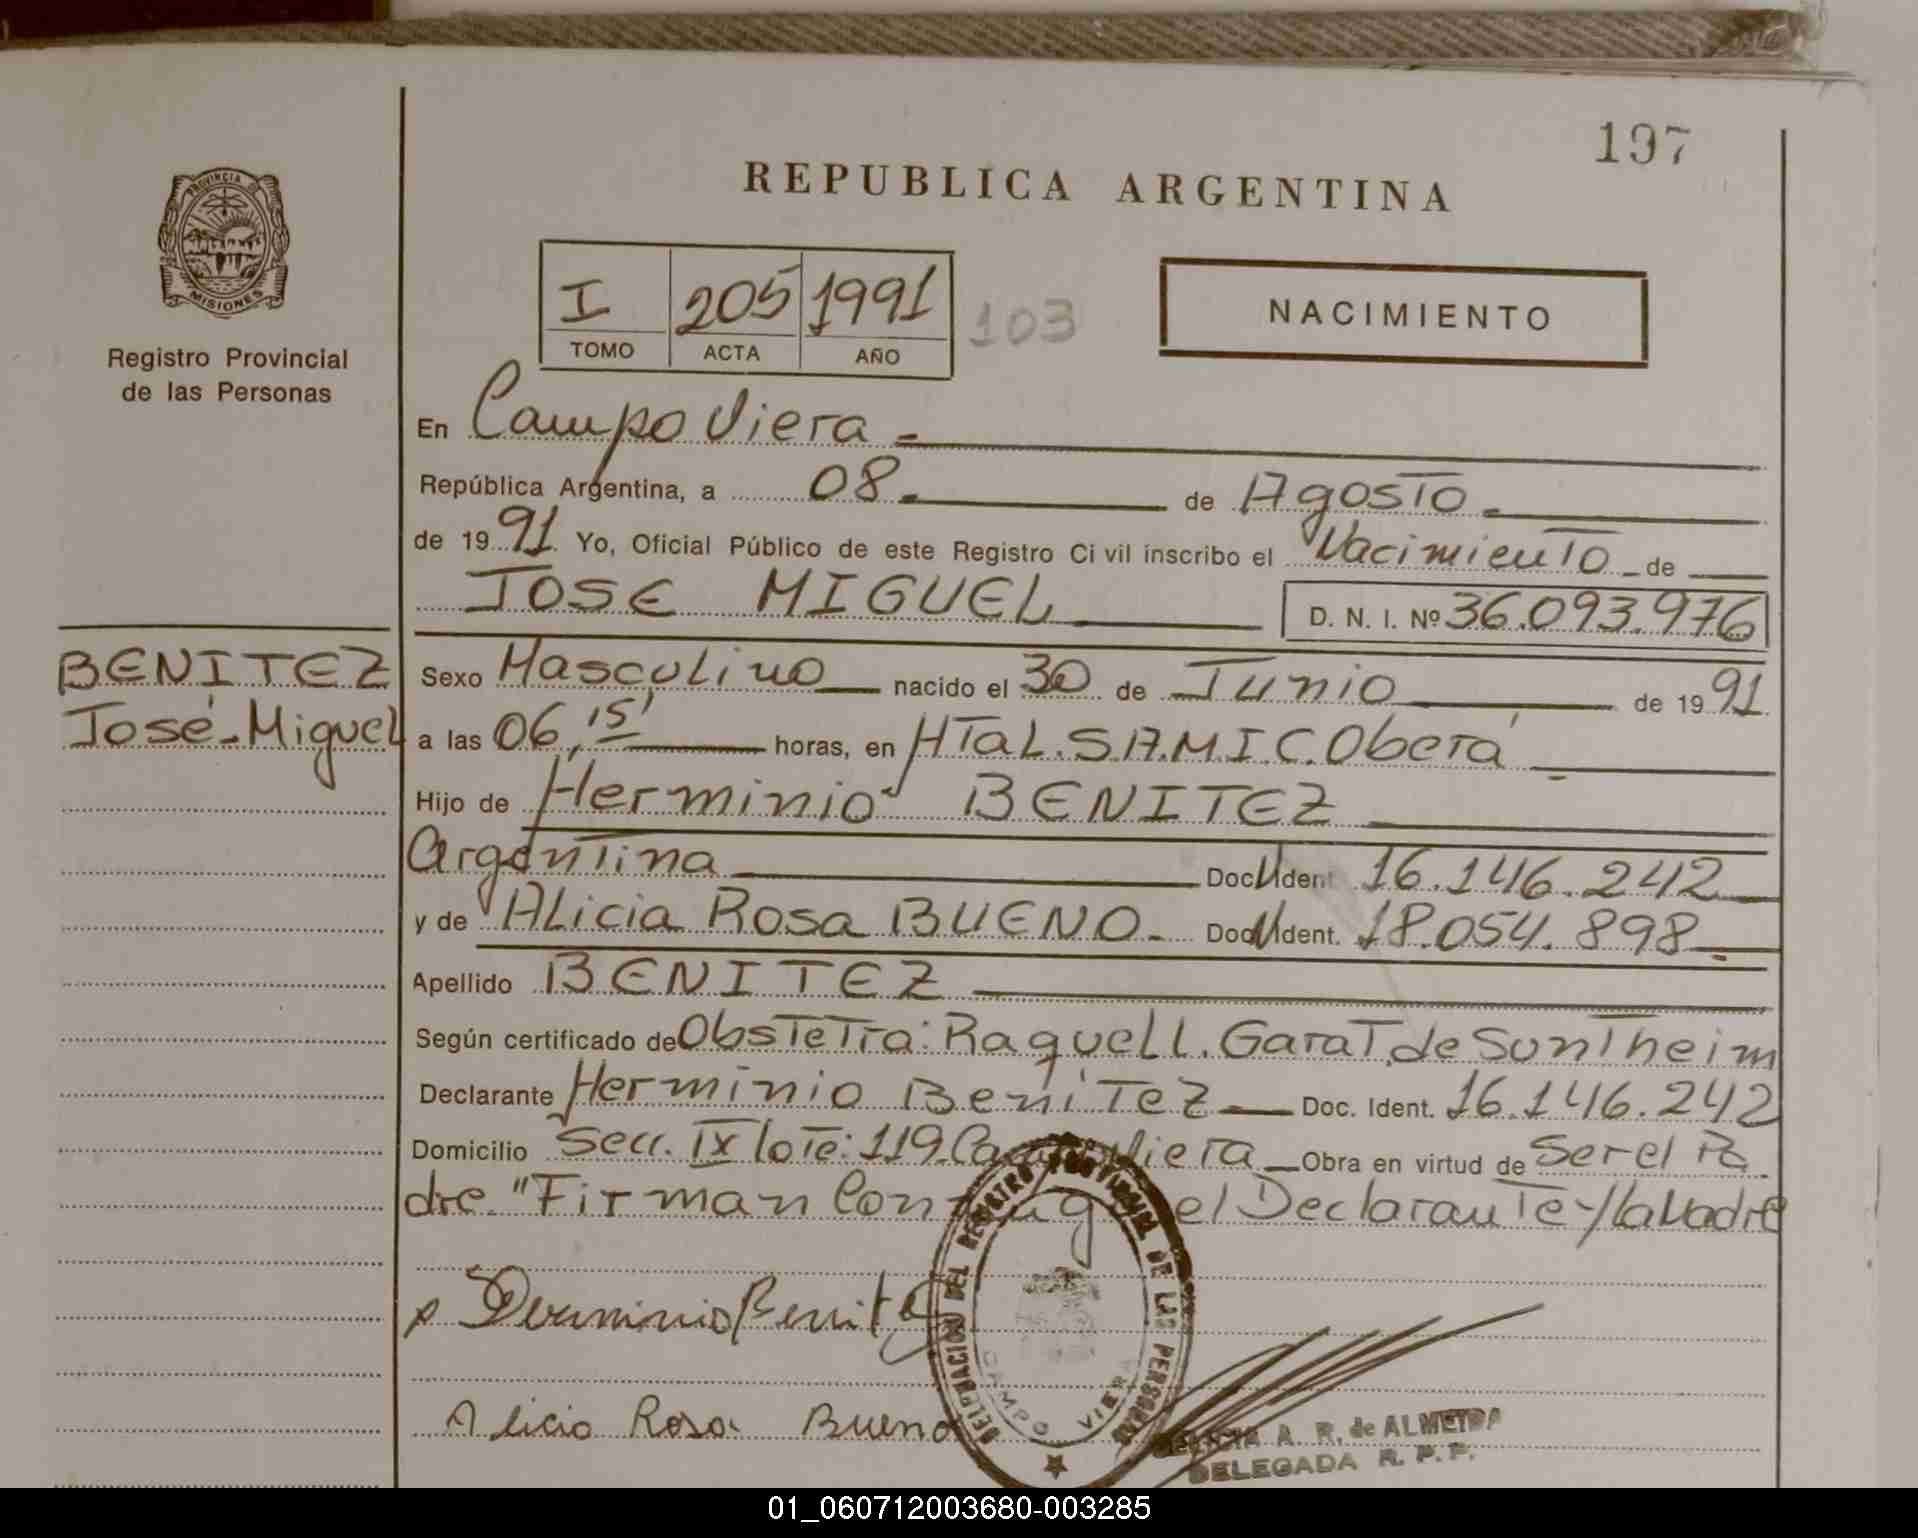 197
REPUBLICA ARGENTINA
PROVINCIA DE
MISIONES
Registro Provincial
de las Personas
I 205 1991
TOMO ACTA AÑO
103
NACIMIENTO
En Campo Viera
República Argentina, a 08 de Agosto
de 1991 Yo, Oficial Público de este Registro Ci vil inscribo el Nacimiento de
JOSE MIGUEL D. N. I. Nº 36.093.976
BENITEZ
José Miguel
Sexo Masculino nacido el 30 de Junio de 1991
a las 06,15' horas, en HTal. S.A.M.I.C. Oberá
Hijo de Herminio BENITEZ
Argentina Doc. Ident 16.146.242
y de Alicia Rosa BUENO Doc. Ident. 18.054.898
Apellido BENITEZ
Según certificado de Obstetra: Raquel L. Garat de Suntheim
Declarante Herminio Benitez Doc. Ident. 16.146.242
Domicilio Secc. IX lote: 119 Campo Viera Obra en virtud de Ser el Pa
dre. "Firman Conmigo el Declarante y la Madre
Herminio Benitez
Alicia Rosa Bueno
DELEGACION DEL REGISTRO PROVINCIAL DE LAS PERSONAS
CAMPO VIERA
A. R. de ALMEIDA
DELEGADA R. P. P.
01_060712003680-003285